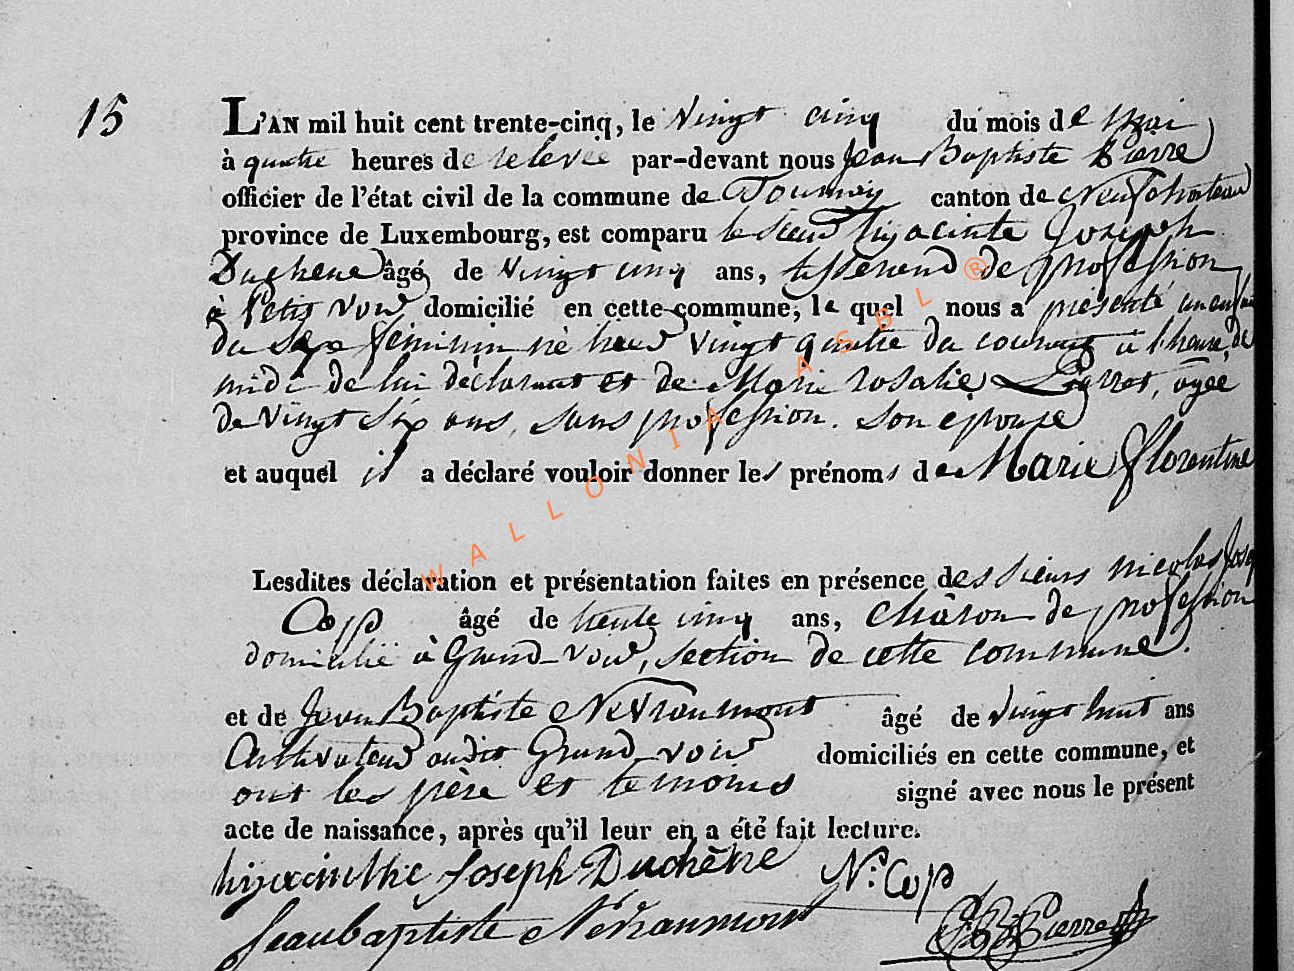 15
L'AN mil huit cent trente-cinq, le vingt cinq du mois de mai
à quatre heures de relevée par-devant nous Jean Baptiste Pierre
officier de l'état civil de la commune de Tournay canton de Neufchateau
province de Luxembourg, est comparu le sieur hijacinte Joseph
Duchene âgé de vingt cinq ans, tisserand de profession
à Petit voir domicilié en cette commune, le quel nous a présenté un enfant
du sexe féminin né hier vingt quatre du courant à l'heure de
midi de lui déclarant et de Marie rosalie Pierret, agée
de vingt six ans, sans profession. son épouse
et auquel il a déclaré vouloir donner les prénoms de Marie florentine
Lesdites déclaration et présentation faites en présence des sieurs nicolas Josep
Cop âgé de trente cinq ans, charon de profession
domicilié à Grand-voir, section de cette commune.
et de Jean Baptiste Névraumont âgé de vingt huit ans
Cultivateur audit Grand voir domiciliés en cette commune, et
ont les père et témoins signé avec nous le présent
acte de naissance, après qu'il leur en a été fait lecture.
hijacinthe Joseph Duchêne N. Cop
Jean baptiste Névraumont J B Pierre
WALLONIA ASBL ®